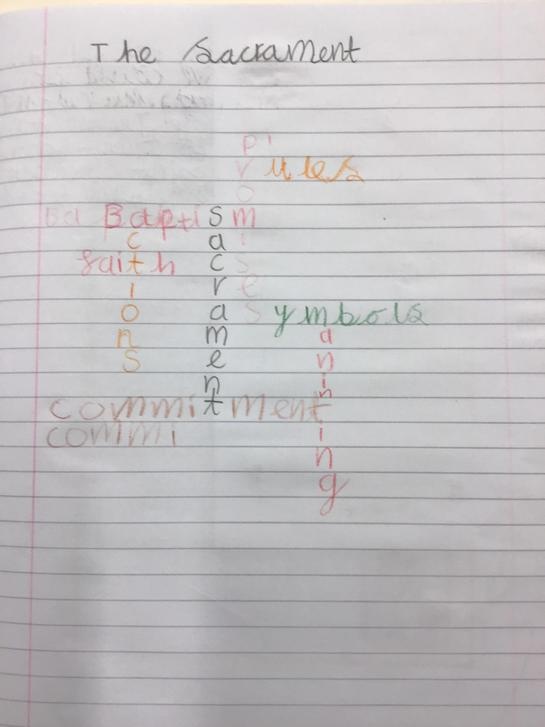 The Sacrament
promises
rules
Baptism
actions
sacrament
faith
symbols
commitment
commi